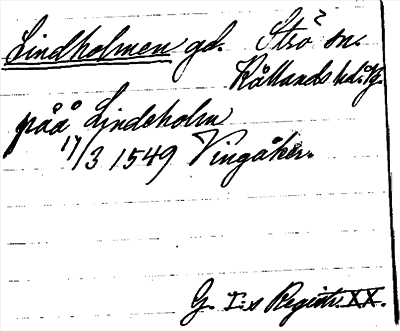 Lindholmen gd. Strö sn.
Kållands hd. Vg.
på å Lindeholm
17/3 1549 Vingåker.
G. I:s Registr. XX.